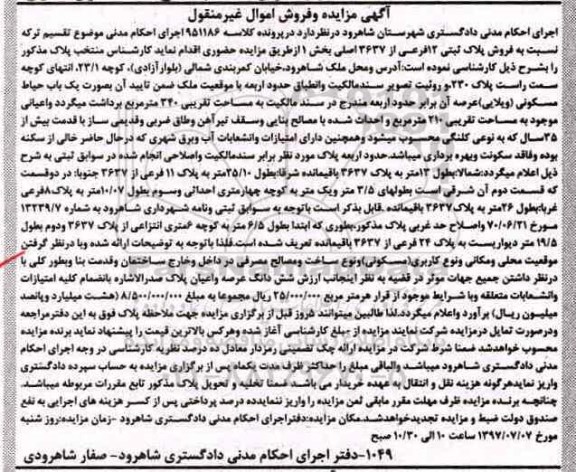 آگهی مزایده وفروش اموال غیرمنقول
اجرای احکام مدنی دادگستری شهرستان شاهرود درنظردارد درپرونده کلاسه ۹۵۱۱۸۶ اجرای احکام مدنی موضوع تقسیم ترکه
نسبت به فروش پلاک ثبتی ۱۲فرعی از ۳۶۳۷ اصلی بخش ۱ ازطریق مزایده حضوری اقدام نماید کارشناس منتخب پلاک مذکور
را بشرح ذیل کارشناسی نموده است:آدرس ومحل ملک شاهرود،خیابان کمربندی شمالی (بلوارآزادی)، کوچه ۲۳/۱، انتهای کوچه
سمت راست پلاک ۲۳۰و روئیت تصویر سندمالکیت وانطباق حدود اربعه با موقعیت ملک ضمن تایید آن بصورت یک باب حیاط
مسکونی (ویلایی)عرصه آن برابر حدود اربعه مندرج در سند مالکیت به مساحت تقریبی ۳۴۰ مترمربع برداشت میگردد واعیانی
موجود به مساحت تقریبی ۲۱۰ مترمربع و احداث شده با مصالح بنایی وسقف تیرآهن وطاق ضربی وقدیمی ساز با قدمت بیش از
۳۵سال که به نوعی کلنگی محسوب میشود وهمچنین دارای امتیازات وانشعابات آب وبرق شهری که درحال حاضر خالی از سکنه
بوده وفاقد سکونت وبهره برداری میباشد.حدود اربعه پلاک مورد نظر برابر سندمالکیت واصلاحی انجام شده در سوابق ثبتی به شرح
ذیل اعلام میگردد:شمالا: بطول ۱۳متر به پلاک ۳۶۳۷ باقیمانده شرقا: بطول ۲۵/۱۰متر به پلاک ۱۱ فرعی از ۳۶۳۷ جنوبا: در دوقسمت
که قسمت دوم آن شرقی است بطولهای ۳/۵ متر ویک متر به کوچه چهارمتری احداثی وسوم بطول ۱۰/۰۷متر به پلاک ۸فرعی
غربا: بطول ۲۶متر به پلاک۳۶۳۷ باقیمانده. قابل بذکر است باتوجه به سوابق ثبتی ونامه شهرداری شاهرود به شماره ۱۳۲۳۹/۷
مورخ ۷۰/۰۶/۲۱ واصلاح حد غربی پلاک مذکور،بطوری که ابتدا بطول ۶/۵ متر به کوچه ۶متری انتزاعی از پلاک ۳۶۳۷ ودوم بطول
۱۹/۵ متر دیواریست به پلاک ۲۴ فرعی از ۳۶۳۷ باقیمانده تعریف شده است.فلذا باتوجه به توضیحات ارائه شده وبا درنظر گرفتن
موقعیت محلی ومکانی ونوع کاربری(مسکونی)ونوع ساخت ومصالح مصرفی در داخل وخارج ساختمان وقدمت بنا وبطور کلی با
درنظر داشتن جمیع جهات موثر در قضیه به نظر اینجانب ارزش شش دانگ عرصه واعیان پلاک صدرالاشاره بانضمام کلیه امتیازات
وانشعابات متعلقه وبا شرایط موجود از قرار هرمتر مربع ۲۵/۰۰۰/۰۰۰ ریال مجموعا به مبلغ ۸/۵۰۰/۰۰۰/۰۰۰ (هشت میلیارد وپانصد
میلیون ریال) برآورد واعلام میگردد.لذا طالبین میتوانند ۵روز قبل از برگزاری مزایده جهت ملاحظه پلاک فوق به این دفترمراجعه
ودرصورت تمایل درمزایده شرکت نمایند مزایده از مبلغ کارشناسی آغاز شده وهرکس بالاترین قیمت را پیشنهاد نماید برنده مزایده
محسوب خواهدشد ضمنا شرط شرکت در مزایده ارائه چک تضمینی رمزدار معادل ده درصد نظریه کارشناسی در وجه اجرای احکام
مدنی دادگستری شاهرود میباشد.والباقی مبلغ را حداکثر ظرف مدت یکماه پس از برگزاری مزایده به حساب سپرده دادگستری
واریز نمایدهرگونه هزینه نقل و انتقال به عهده خریدار می باشد. ضمنا تخلیه و تحویل پلاک مذکور تابع مقررات مربوطه میباشد.
چنانچه برنده مزایده ظرف مهلت مقرر مابقی ثمن مزایده را واریز ننمایدده درصد پرداختی پس از کسر هزینه های اجرایی به نفع
صندوق دولت ضبط و مزایده تجدیدخواهدشد.مکان مزایده:دفتراجرای احکام مدنی دادگستری شاهرود -زمان مزایده:روز شنبه
مورخ ۱۳۹۷/۰۷/۰۷ ساعت ۱۰ الی ۱۰/۳۰ صبح
۱۰۴۹-دفتر اجرای احکام مدنی دادگستری شاهرود- صفار شاهرودی